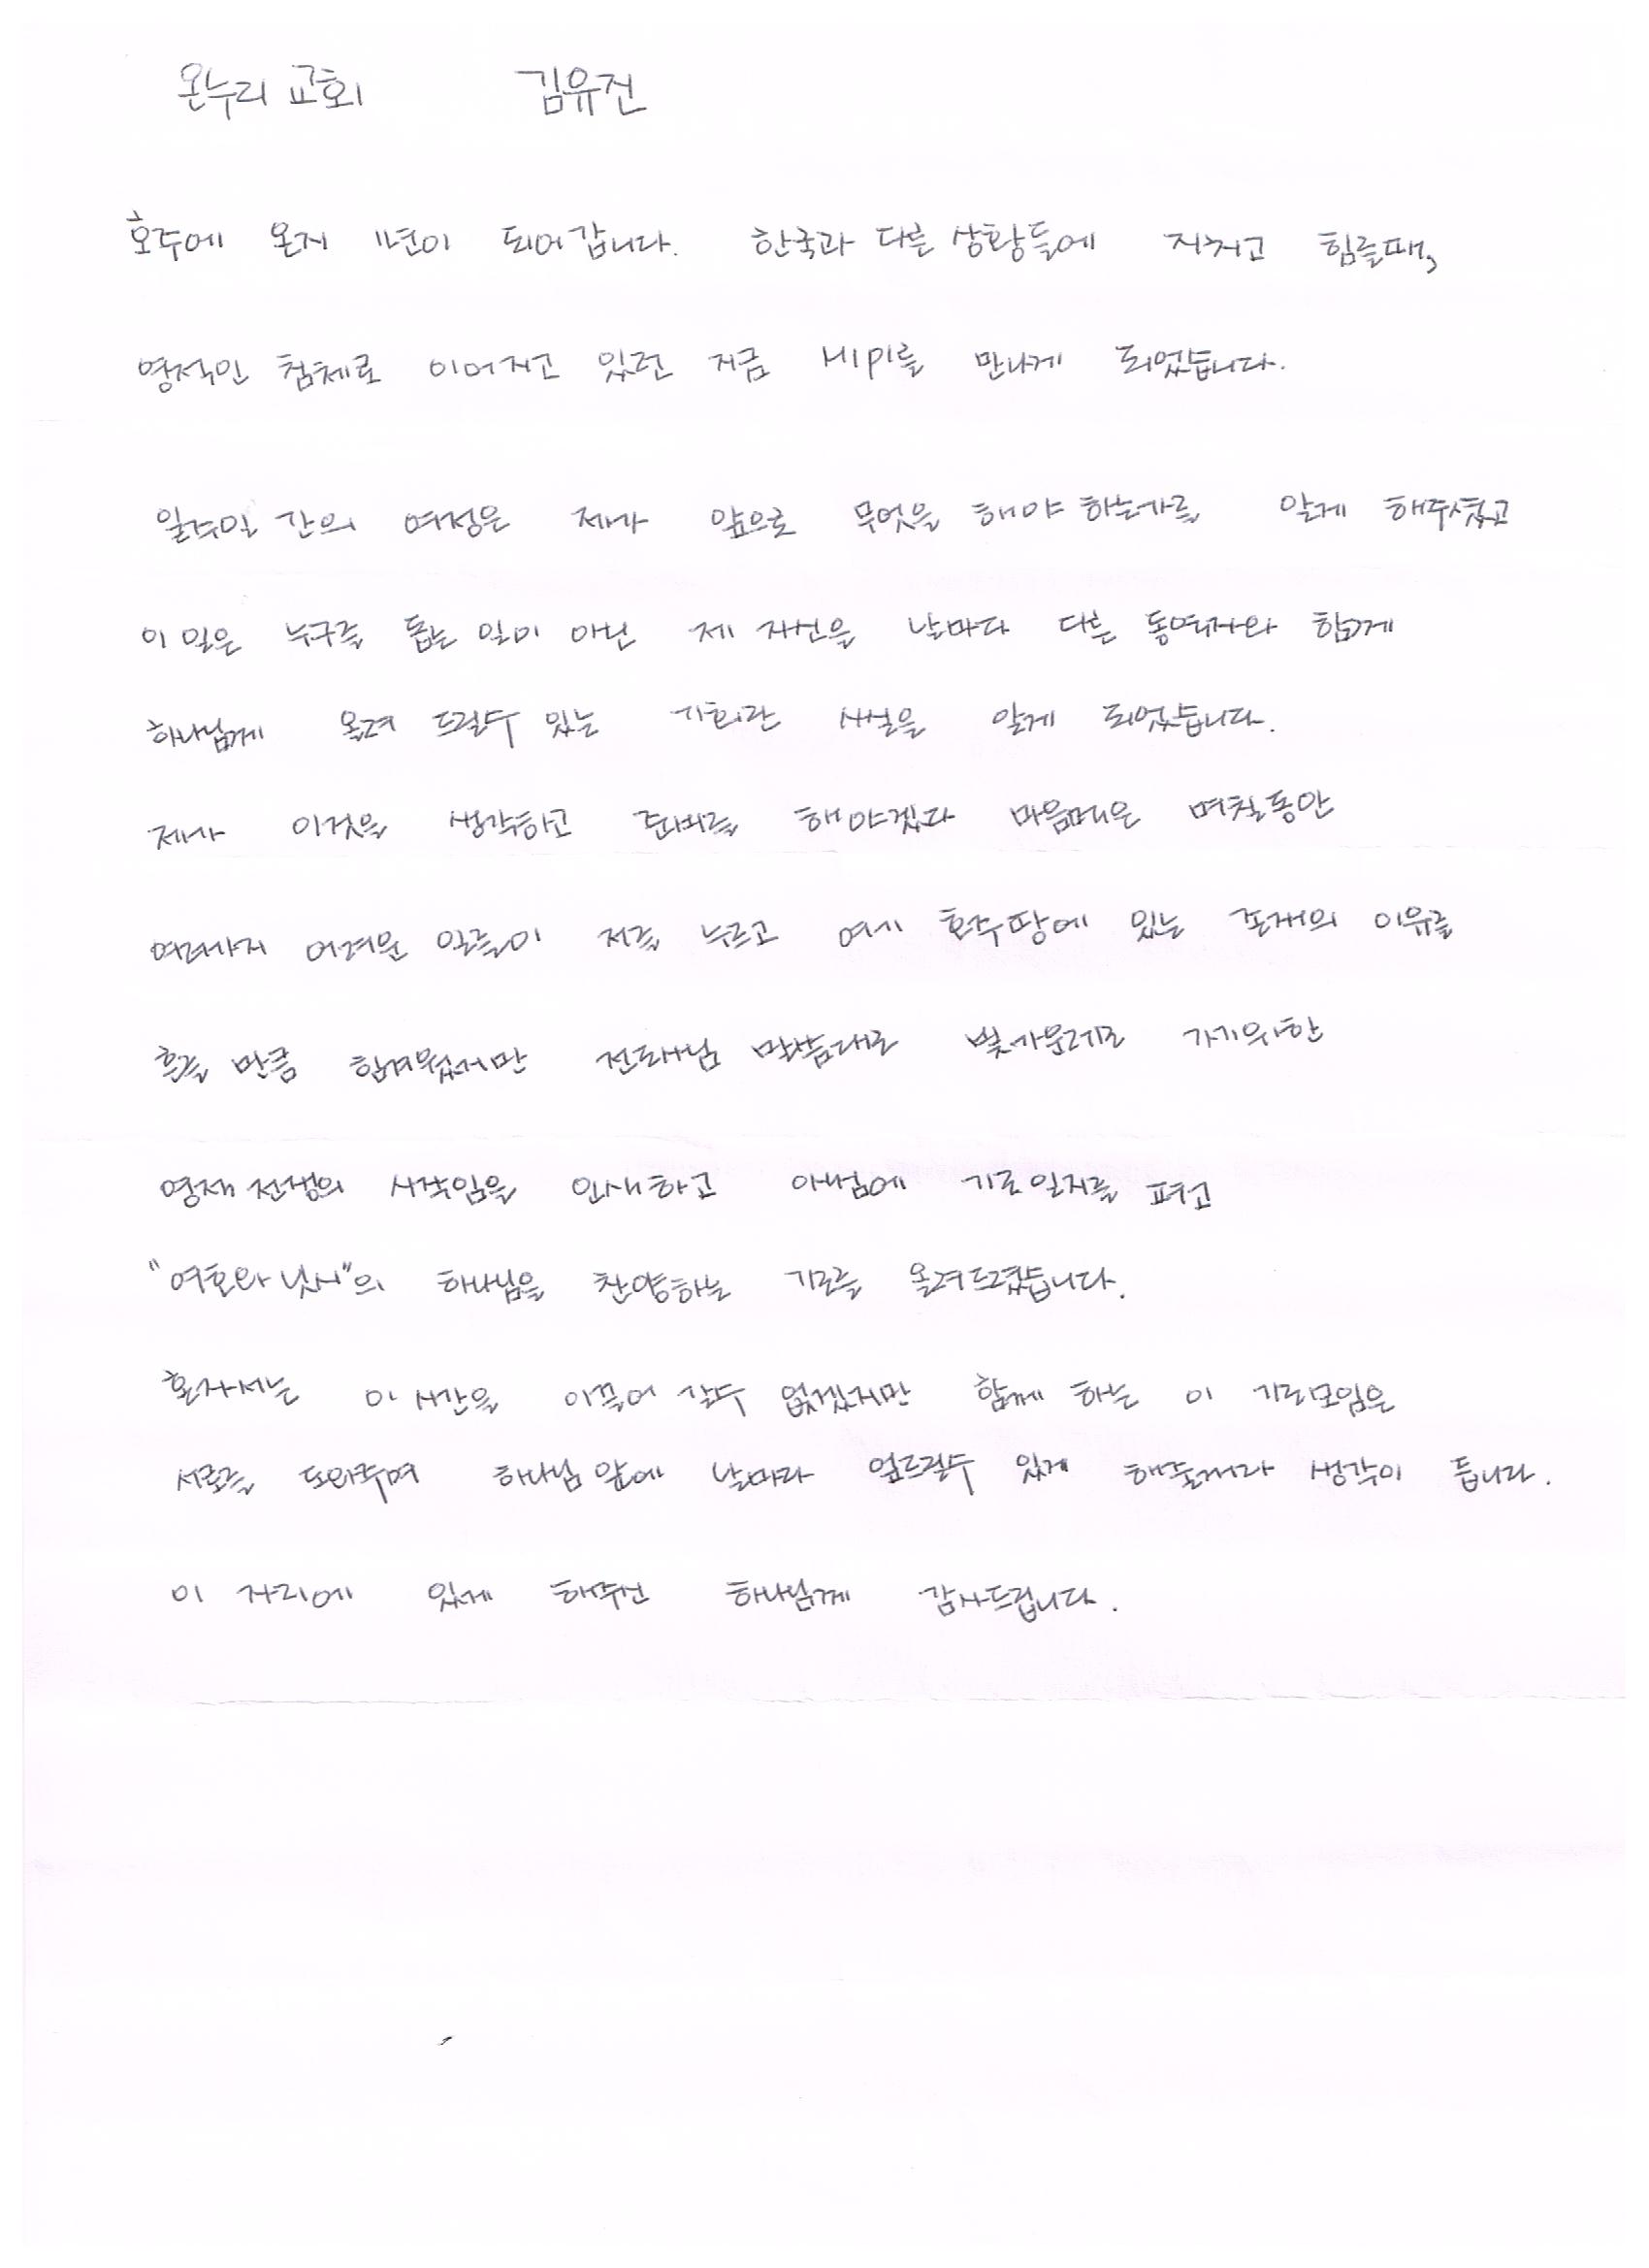 온누리 교회 김유진
호주에 온지 1년이 되어갑니다. 한국과 다른 상황들에 지치고 힘들때,
영적인 침체로 이어지고 있던 지금 HIPI를 만나게 되었습니다.
일주일 간의 여정은 제가 앞으로 무엇을 해야 하는가를 알게 해주셨고
이 일은 누구를 돕는 일이 아닌 제 자신을 날마다 다른 동역자와 함께
하나님께 올려 드릴수 있는 기회란 사실을 알게 되었습니다.
제가 이것을 생각하고 준비를 해야겠다 마음먹은 며칠동안
여러가지 어려운 일들이 저를 누르고 여기 호주땅에 있는 존재의 이유를
흔들 만큼 힘겨웠지만 전도사님 말씀대로 빛가운데로 가기위한
영적 전쟁의 시작임을 인식하고 아침에 기도일지를 펴고
"여호와 닛시"의 하나님을 찬양하는 기도를 올려드렸습니다.
혼자서는 이 시간을 이끌어 갈수 없겠지만 함께 하는 이 기도모임은
서로를 도와주며 하나님 앞에 날마다 엎드릴수 있게 해줄거라 생각이 듭니다.
이 자리에 있게 해주신 하나님께 감사드립니다.